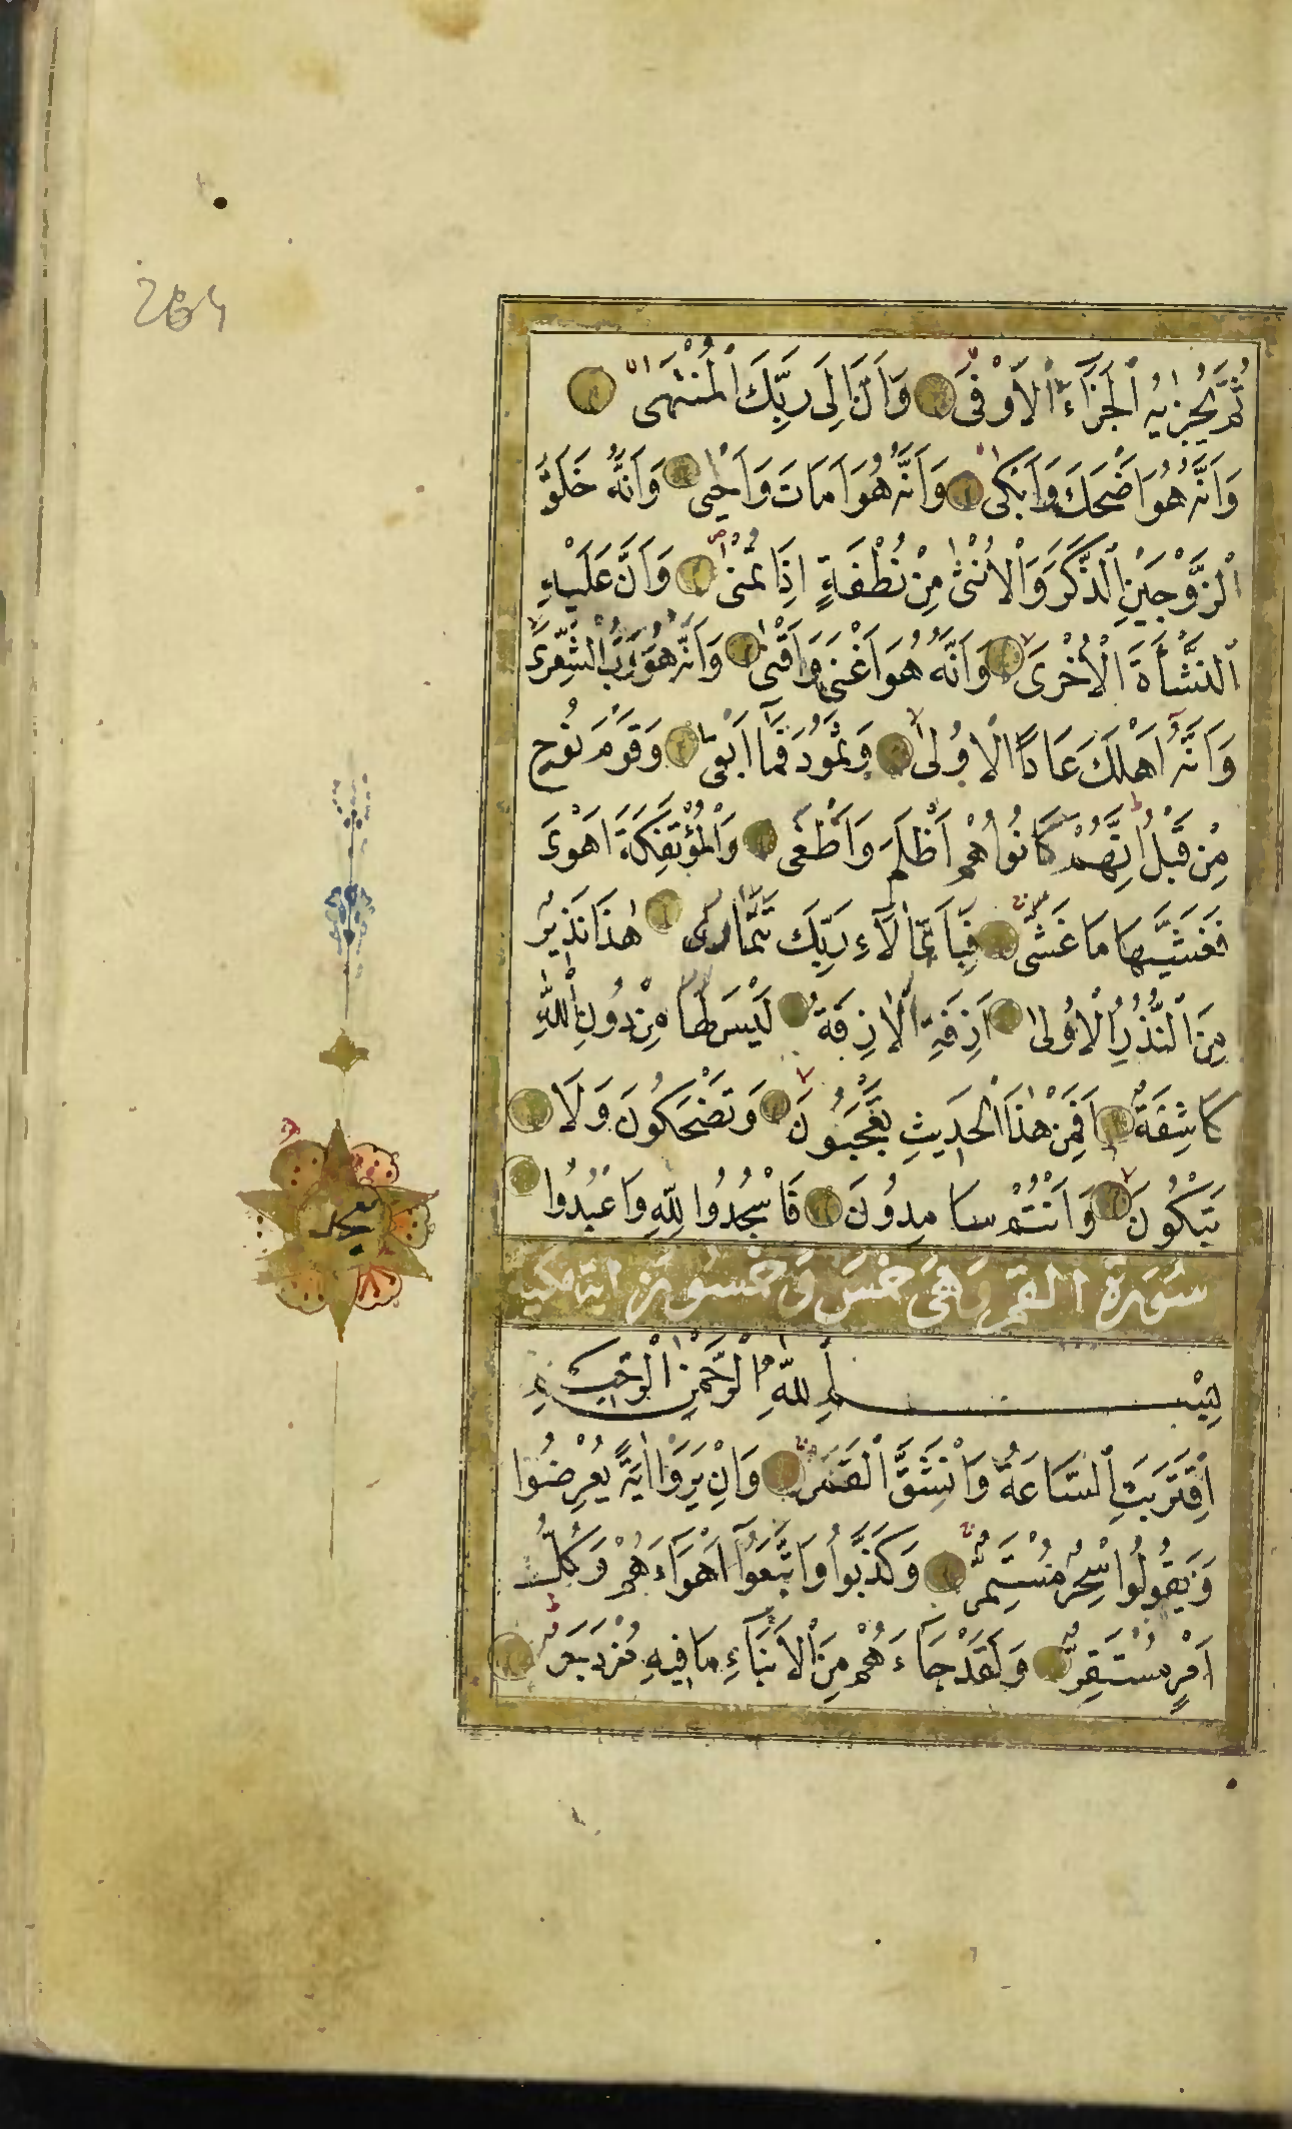 264
ثُمَّ يُجْزٰيهُ الْجَزَٓاءَ الْاَوْفٰى وَاَنَّ اِلٰى رَبِّكَ الْمُنْتَهٰى
وَاَنَّهُ هُوَ اَضْحَكَ وَاَبْكٰى وَاَنَّهُ هُوَ اَمَاتَ وَاَحْيٰى وَاَنَّهُ خَلَقَ
الزَّوْجَيْنِ الذَّكَرَ وَالْاُنْثٰى مِنْ نُطْفَةٍ اِذَا تُمْنٰى وَاَنَّ عَلَيْهِ
النَّشْاَةَ الْاُخْرٰى وَاَنَّهُ هُوَ اَغْنٰى وَاَقْنٰى وَاَنَّهُ هُوَ رَبُّ الشِّعْرٰى
وَاَنَّهُٓ اَهْلَكَ عَادًا الْاُولٰى وَثَمُودَ فَمَٓا اَبْقٰى وَقَوْمَ نُوحٍ
مِنْ قَبْلُ اِنَّهُمْ كَانُوا هُمْ اَظْلَمَ وَاَطْغٰى وَالْمُؤْتَفِكَةَ اَهْوٰى
فَغَشّٰيهَا مَا غَشّٰى فَبِاَىِّ اٰلَٓاءِ رَبِّكَ تَتَمَارٰى هٰذَا نَذِيرٌ
مِنَ النُّذُرِ الْاُولٰى اَزِفَتِ الْاٰزِفَةُ لَيْسَ لَهَا مِنْ دُونِ اللّٰهِ
كَاشِفَةٌ اَفَمِنْ هٰذَا الْحَدِيثِ تَعْجَبُونَ وَتَضْحَكُونَ وَلَا
تَبْكُونَ وَاَنْتُمْ سَامِدُونَ فَاسْجُدُوا لِلّٰهِ وَاعْبُدُوا
سُورَةُ القمر وَهِىَ خمسَ وَ خمسون اية مكية
بِسْمِ اللّٰهِ الرَّحْمٰنِ الرَّحِيمِ
اِقْتَرَبَتِ السَّاعَةُ وَانْشَقَّ الْقَمَرُ وَاِنْ يَرَوْا اٰيَةً يُعْرِضُوا
وَيَقُولُوا سِحْرٌ مُسْتَمِرٌّ وَكَذَّبُوا وَاتَّبَعُٓوا اَهْوَٓاءَهُمْ وَكُلُّ
اَمْرٍ مُسْتَقِرٌّ وَلَقَدْ جَٓاءَهُمْ مِنَ الْاَنْبَٓاءِ مَا فِيهِ مُزْدَجَرٌ